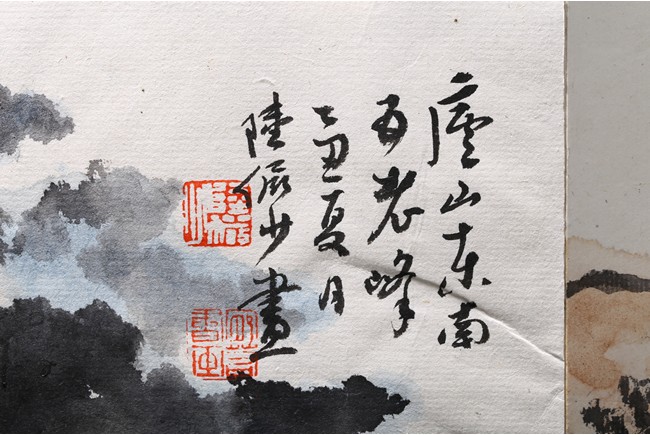 廬山東南
五老峰
乙丑夏月
陸儼少畫